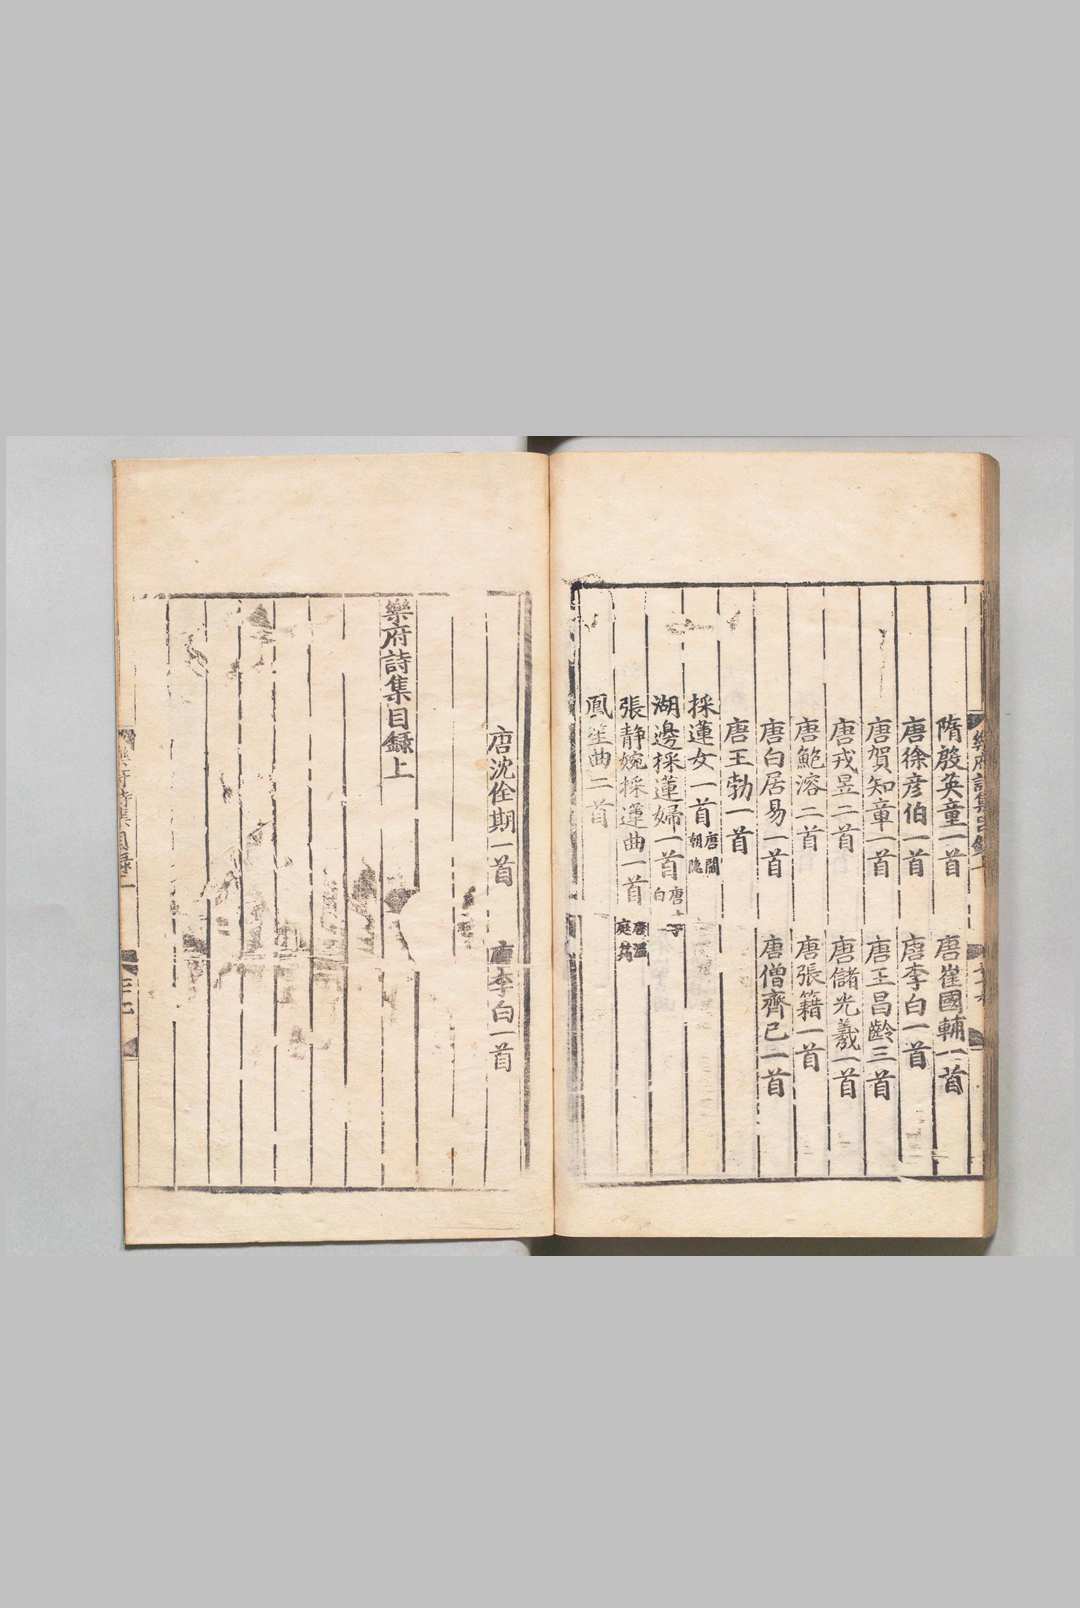 隋殷英童一首　唐崔國輔一首
唐徐彦伯一首　唐李白一首
唐賀知章一首　唐王昌齡三首
唐戎昱二首　唐儲光羲一首
唐鮑溶二首　唐張籍一首
唐白居易一首　唐僧齊已一首
唐王勃一首
採蓮女一首 唐閻朝隐
湖邊採蓮婦一首 唐李白
張静婉採蓮曲一首 唐溫庭筠
鳳笙曲二首
唐沈佺期一首　唐李白一首
樂府詩集目錄上
樂府詩集目錄上
樂府詩集目錄